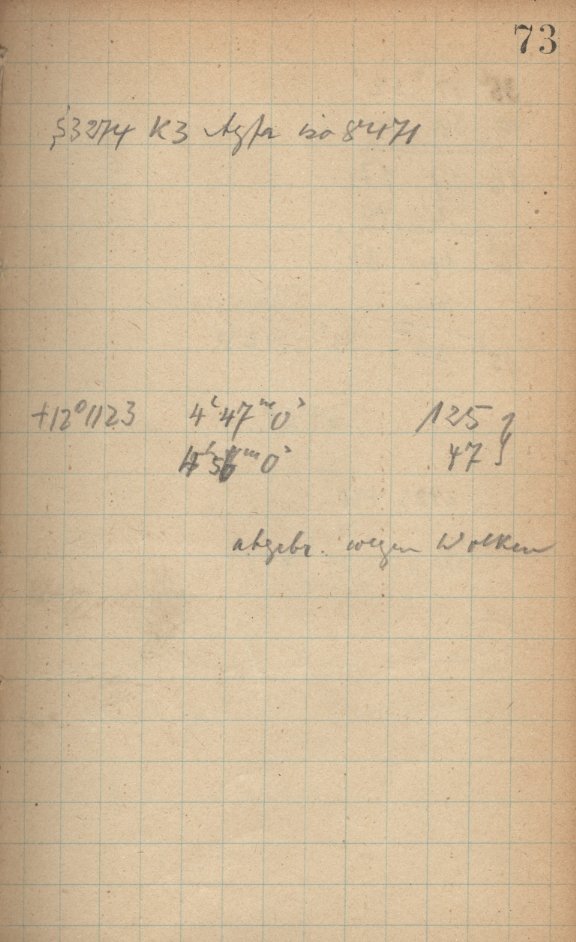 73
S3274 K3 Agfa iso 8471
+12°1123 4ʰ47ᵐ0ˢ 125
4ʰ56ᵐ0ˢ 47
abgebr. wegen Wolken